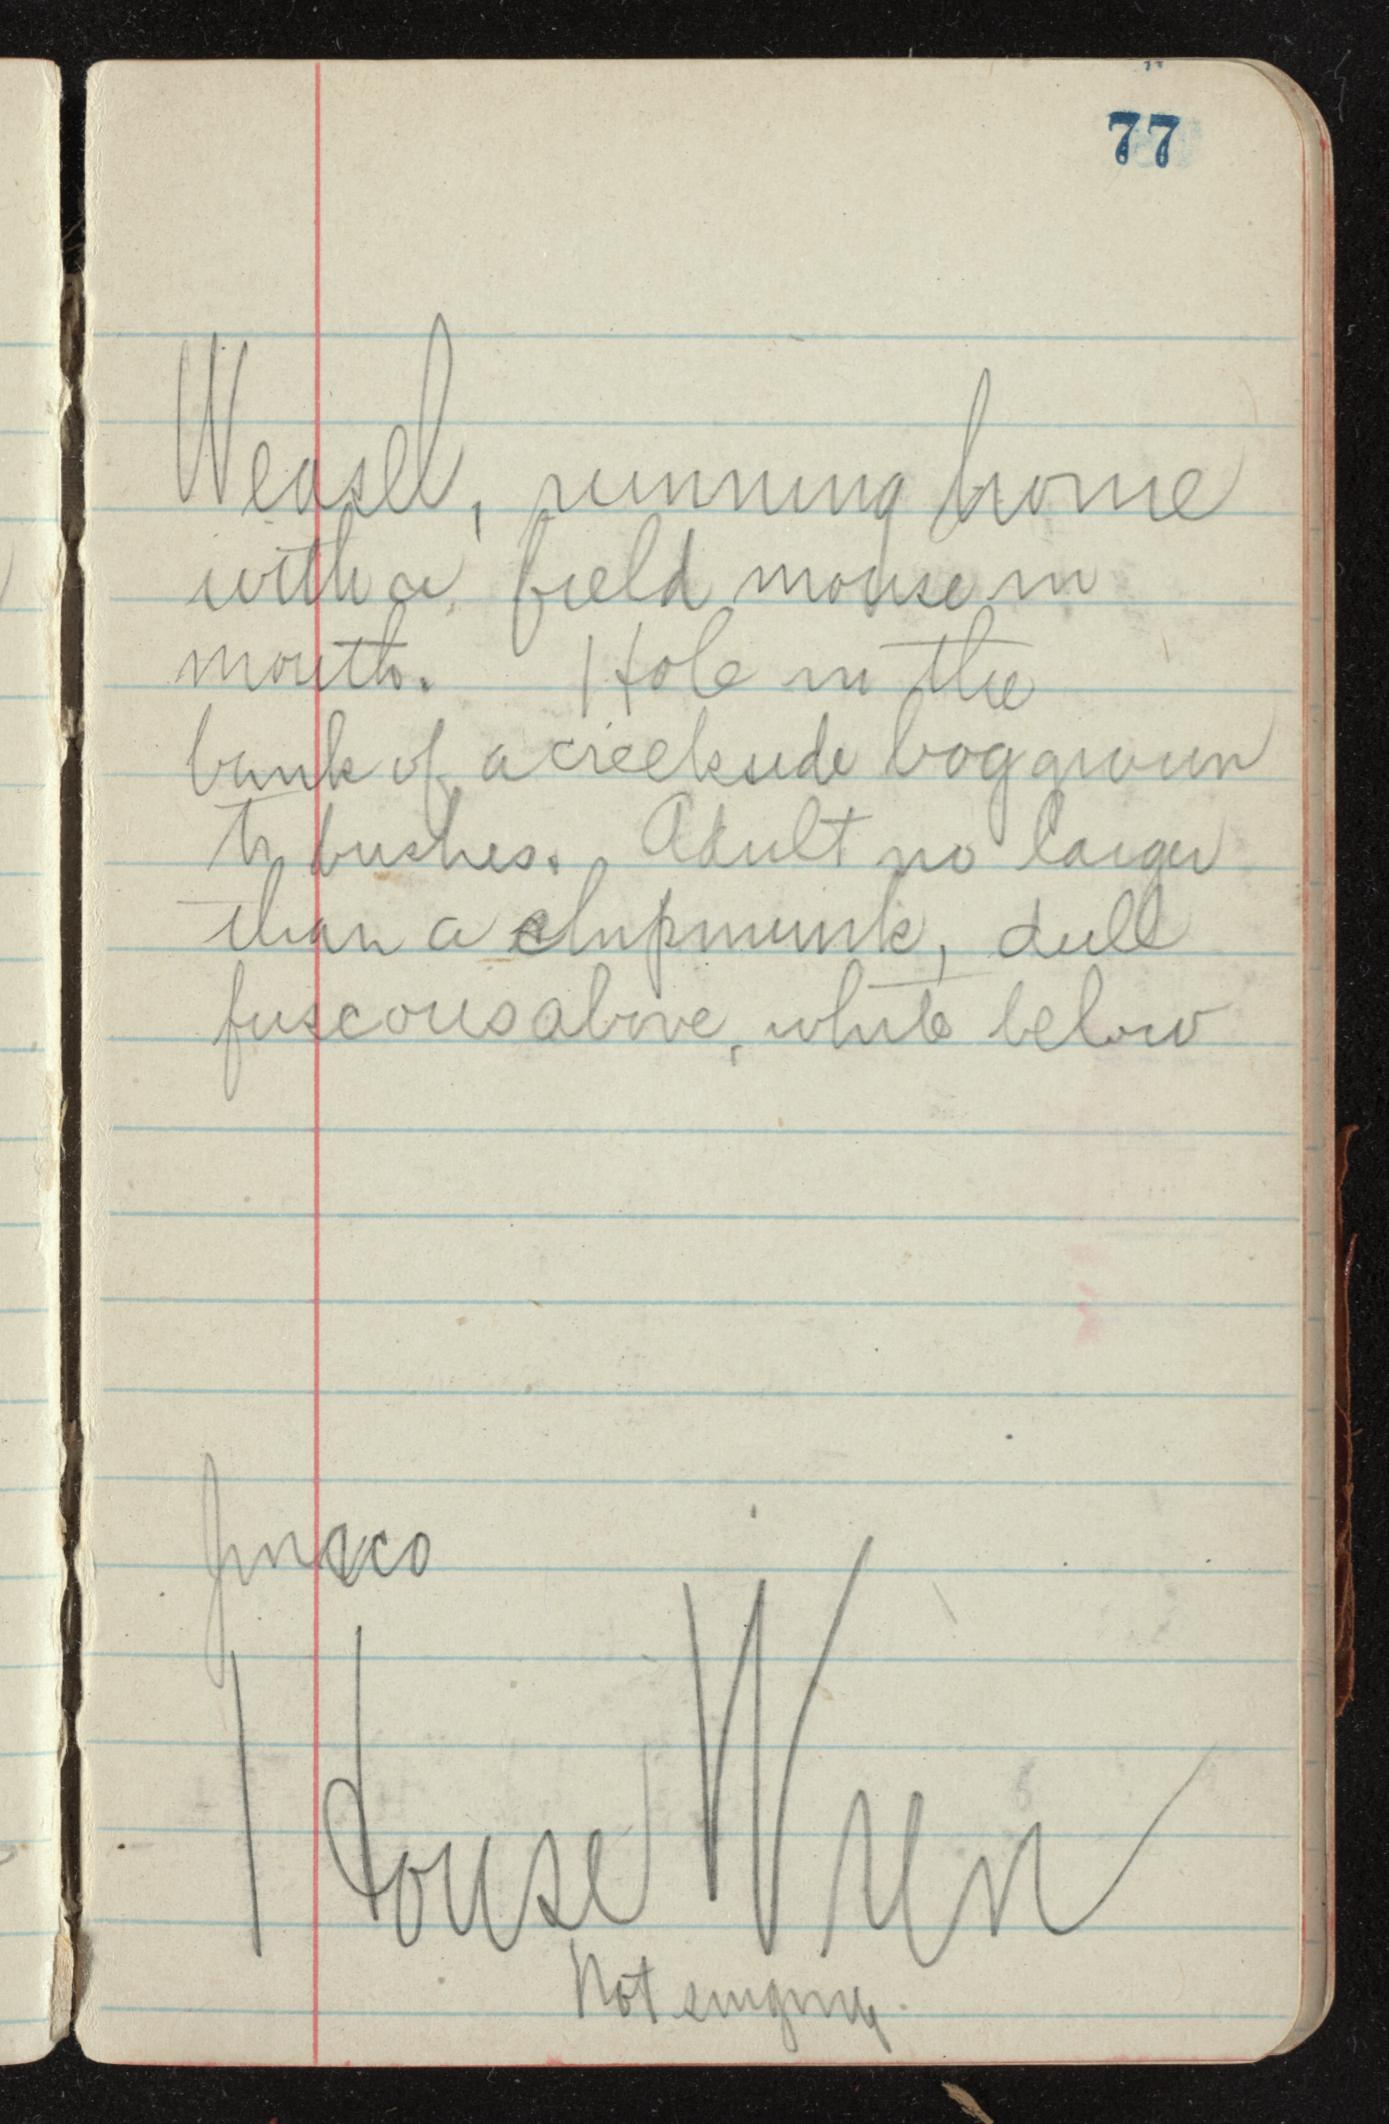 77
Weasel, running home
with a field mouse in
mouth. Hole in the
bank of a creekside bog grown
to bushes. Adult no larger
than a chipmunk, dull
fuscous above, white below
Junco
House Wren
Not singing.